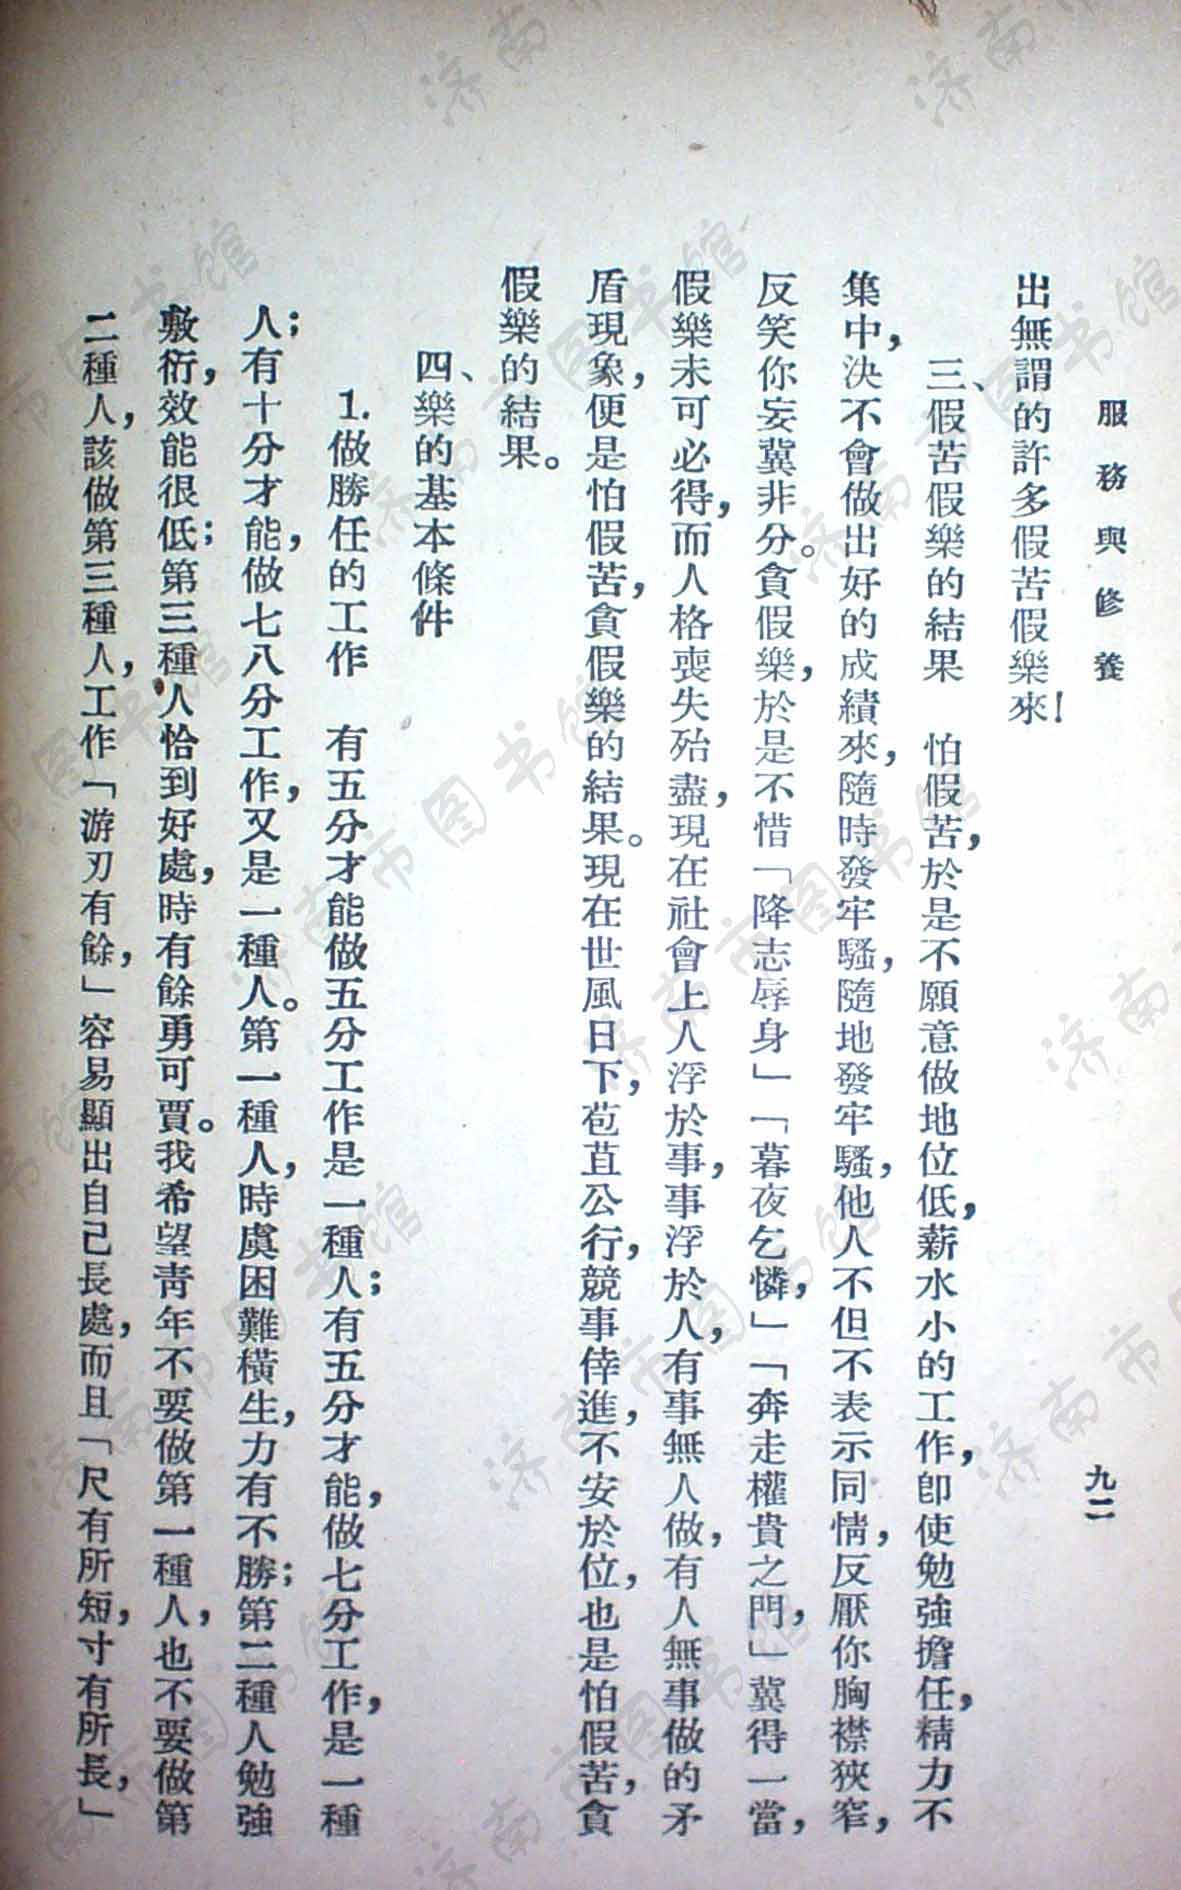 服務與修養
九二
出無謂的許多假苦假樂來！
三、假苦假樂的結果　怕假苦，於是不願意做地位低，薪水小的工作，卽使勉強擔任，精力不
集中，決不會做出好的成績來，隨時發牢騷，隨地發牢騷，他人不但不表示同情，反厭你胸襟狹窄，
反笑你妄冀非分。貪假樂，於是不惜「降志辱身」「暮夜乞憐，」「奔走權貴之門，」冀得一當，
假樂未可必得，而人格喪失殆盡，現在社會上人浮於事，事浮於人，有事無人做，有人無事做的矛
盾現象，便是怕假苦，貪假樂的結果。現在世風日下，苞苴公行，競事倖進，不安於位，也是怕假苦，貪
假樂的結果。
四、樂的基本條件
1.做勝任的工作　有五分才能做五分工作是一種人；有五分才能，做七分工作，是一種
人；有十分才能，做七八分工作，又是一種人。第一種人，時虞困難橫生，力有不勝；第二種人勉強
敷衍，效能很低；第三種人恰到好處，時有餘勇可賈。我希望靑年不要做第一種人，也不要做第
二種人，該做第三種人，工作「游刃有餘，」容易顯出自己長處，而且「尺有所短，寸有所長，」
济南市图书馆